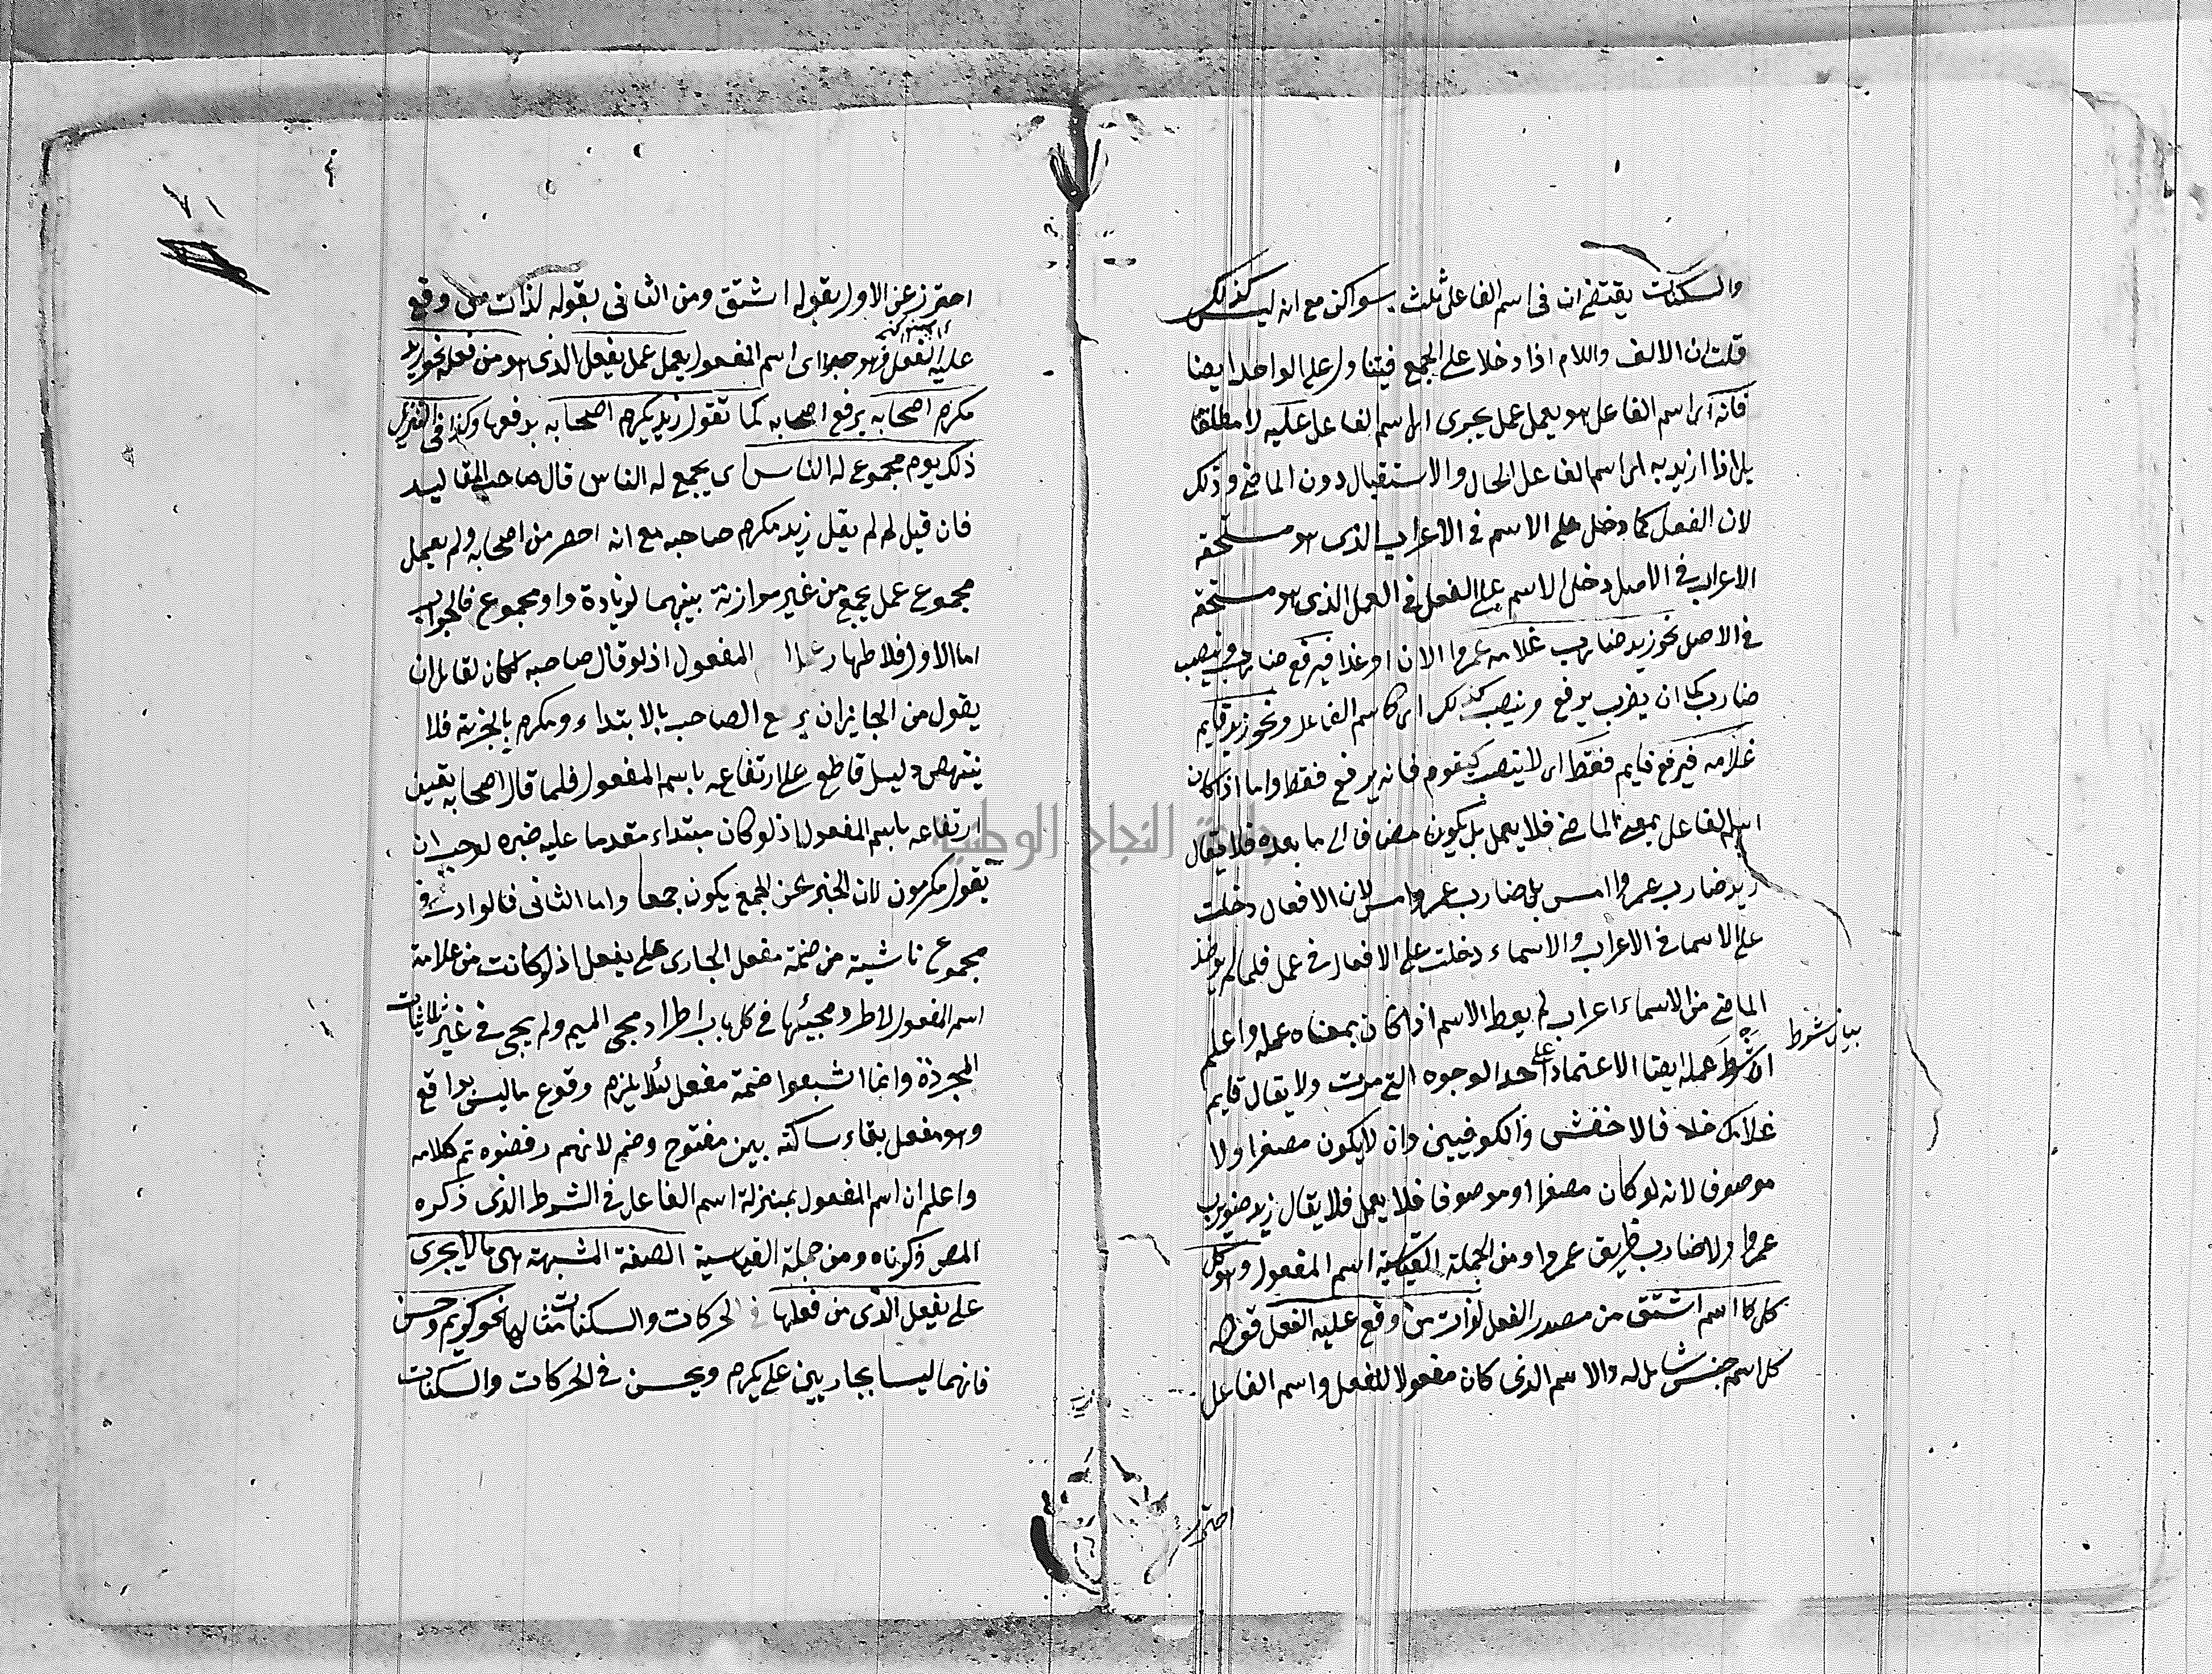 والسكنات يقتضى ان فى اسم الفاعل ثلث سواكن مع انه ليس كذلك
قلت ان الالف واللام اذا دخلا على الجمع فيتناول على الواحد ايضا
فانه اى اسم الفاعل هو يعمل عمل يجرى اى اسم الفاعل عليه لا مطلقا
بل اذا اريد به اى اسم الفاعل الحال والاستقبال دون الماضى وذلك
لان الفعل كما دخل على الاسم فى الاعراب الذى هو مستحقه
الاعراب فى الاصل دخل الاسم على الفعل فى العمل الذى هو مستحقه
فى الاصل نحو زيد ضارب غلامه عمروا الان او غدا فيرفع ضارب وينصب
ضارب كما ان يضرب يرفع وينصب كذلك اى كاسم الفاعل ونحو زيد قايم
غلامه فيرفع قايم فقط اى لا ينصب كيقوم فانه يرفع فقط واما اذا كان
اسم الفاعل بمعنى الماضى فلا يعمل بل يكون مضافا الى ما بعده فلا يقال
زيد ضارب عمروا امس بل ضارب عمرو امس لان الافعال دخلت
على الاسما فى الاعراب والاسماء دخلت على الافعال فى عمل فلما لم يوخذ
الماضى من الاسماء اعراب لم يعط الاسم اذا كان بمعناه عمله واعلم
ان شرط عمله ايضا الاعتماد على احد الوجوه التى مرت ولا يقال قايم
بيان شرط
غلامك خلا فالاخفش والكوفيين وان لا يكون مصغرا ولا
موصوفا لانه لو كان مصغرا او موصوفا فلا يعمل فلا يقال زيد ضويرب
عمروا ولا ضارب ظريق عمروا ومن الجملة القياسية اسم المفعول وهو كل
كل اسم اشتق من مصدر الفعل لذات من وقع عليه الفعل فقوله
كل اسم جنس شامل له والاسم الذى كان مفعولا للفعل واسم الفاعل
احترز
احترز عن الاول بقوله اشتق ومن الثانى بقوله لذات من وقع
عليه الفعل فهو اى اسم المفعول يعمل عمل يفعل الذى هو من فعله نحو زيد
مكرم اصحابه يرفع اصحابه كما تقول زيد يكرم اصحابه برفعها وكذا فى التنزيل
ذلك يوم مجموع له الناس اى يجمع له الناس قال صاحب المقاليد
فان قيل لم لم يقل زيد مكرم صاحبه مع انه احصر من اصحابه ولم يعمل
مجموع عمل يجمع من غير موازنة بينهما لزيادة واو مجموع فالجواب
اما الاول فلاظهار المفعول اذ لو قال صاحبه لكان لقايل ان
يقول من الجايز ان يرفع الصاحب بالابتداء ومكرم بالخبرية فلا
ينتهض دليل قاطع على ارتفاعه باسم المفعول فلما قال اصحابه تعين
ارتفاعه باسم المفعول اذ لو كان مبتداء متقدما عليه خبره لوجب ان
يقول مكرمون لان الخبر عن الجمع يكون جمعا واما الثانى فالواو فى
مجموع ناشية من ضمة مفعل الجارى على يفعل اذ لو كانت من علامة
اسم المفعول لاطرد مجيئها فى كل باب اطراد مجى الميم ولم يجى فى غير ثلاثيات
المجردة وانما اشبعوا ضمة مفعل لئلا يلزم وقوع ما ليس بواقع
وهو مفعل بقاء ساكنة بين مفتوح وضم لانهم رفضوه تم كلامه
واعلم ان اسم المفعول بمنزلة اسم الفاعل فى الشرط الذى ذكره
المص ذكرناه ومن جملة القياسية الصفة المشبهة هى ما لا يجرى
على يفعل الذى من فعلها فى الحركات والسكنات مثالها نحو كريم وحسن
فانهما ليسا بجاريين على يكرم ويحسن فى الحركات والسكنات
جامعة النجاح الوطنية